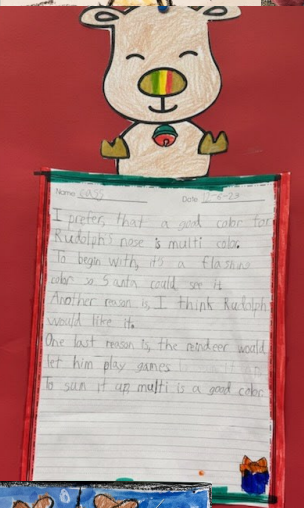 Name
Date 12-6-23
I prefer, that a good color for
Rudolph's nose is multi color.
To begin with, it's a flashing
color so Santa could see it
Another reason is, I think Rudolph
would like it.
One last reason is, the reindeer would
let him play games
To sum it up, multi is a good color.